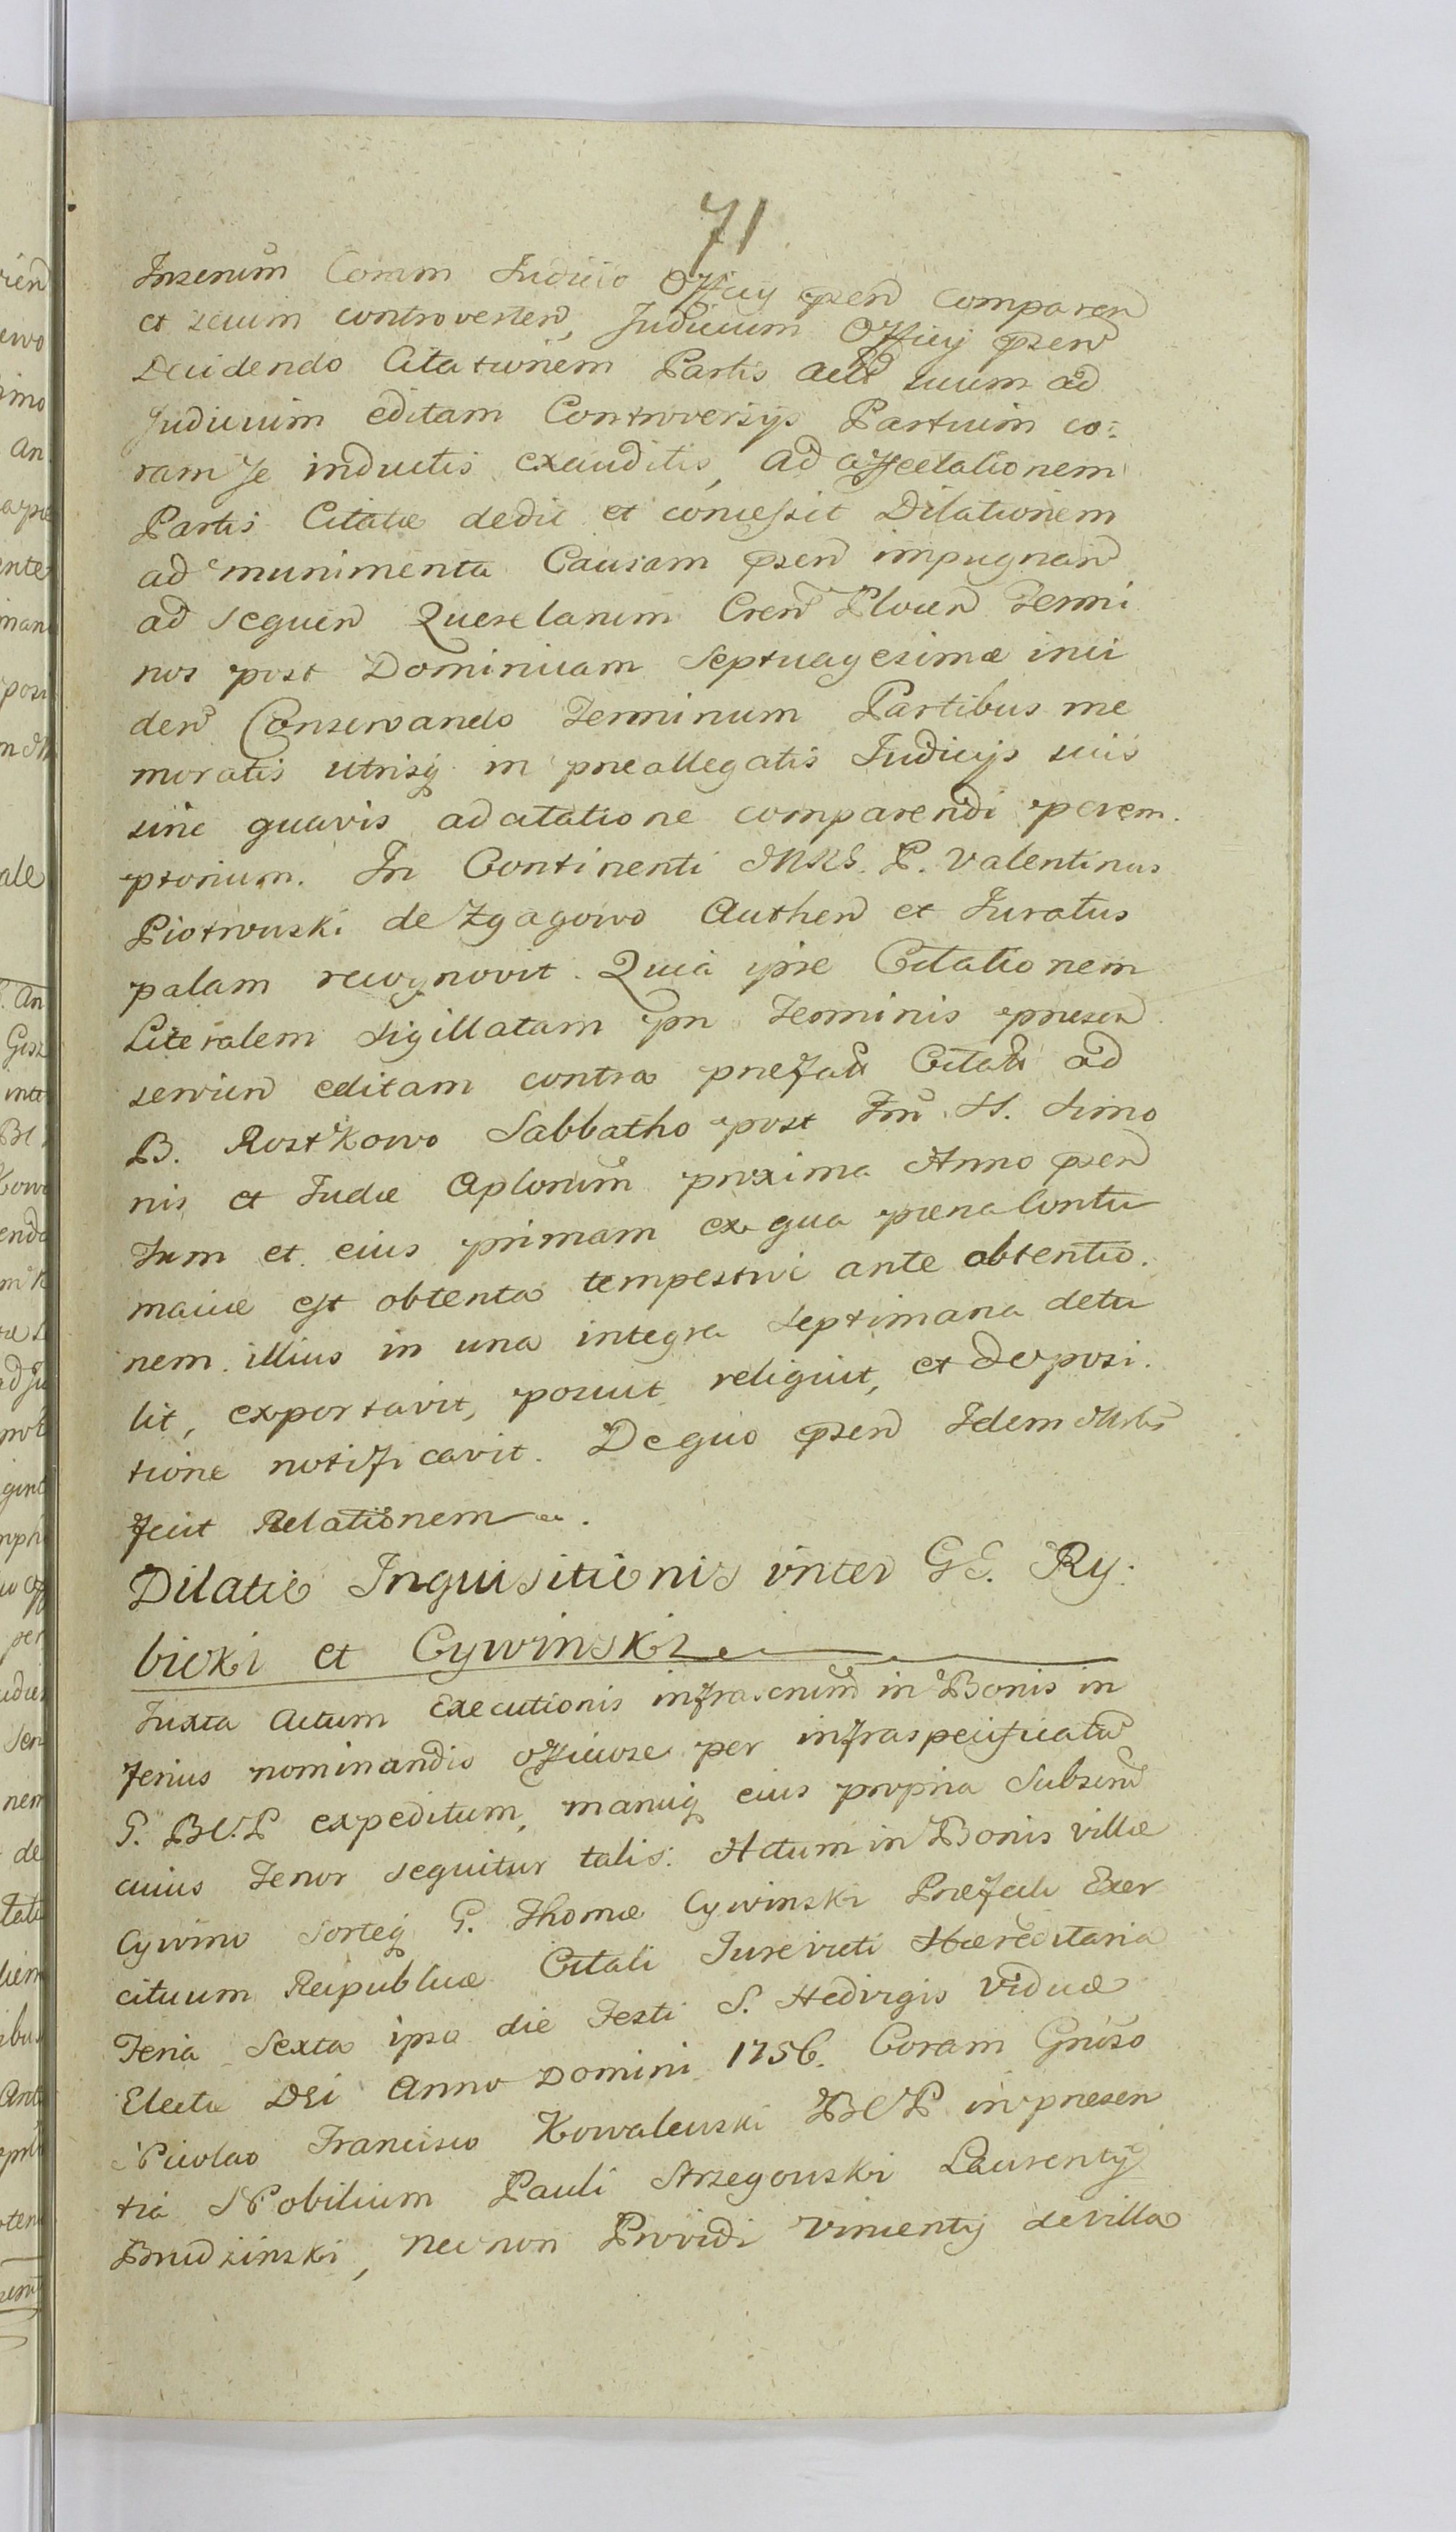 71
Inserum Comm Judicio Officij psen comparen
et secum controverten, Judicium Officij psen
Decidendo Citationem Partis Actt suum ad
Judicium editam Controversijs Partium co:
ram se inductis exauditis, ad affectationem
Partis Citatæ dedit et concessit Dilationem
ad munimenta Causam psen impugnan
ad sequen Querelarum Cren Plocen Termi
nos post Dominicam Septuagesimæ inci
den Conservando Terminum Partibus me
moratis utrisq in præallegatis Judicijs suis
sine quavis adcitatione comparendi perem.
ptorium. In Continenti Mnls. P. Valentinus
Piotrowski de Zgagowo Authen et Juratus
palam recognovit. Quia ipse Citationem
Literalem sigillatam pn Terminis præsen
servien editam contra præfati Citati ad
B. Rostkowo Sabbatho post Fm. SS. Simo
nis et Judæ Aplorum proxima Anno psen
Tum et eius primam ex qua pæna Contu
maciæ est obtenta tempestive ante obtentio.
nem illius in una integra septimana detu
lit, exportavit, posuit reliquit, et Deposi.
tione notificavit. De quo psen Idem Mnls
fecit Relationem.
Dilatio Inquisitionis inter GG. Ry:
bicki et Cywinski
Juxta Actum Executionis infrascrium in Bonis in
ferius nominandis officiose per infraspecificatu
G. BCP expeditum, manuq eius propria Subscrm
cuius Tenor sequitur talis. Actum in Bonis villæ
Cywino Sorteq G. Thomæ Cywinski Præfecti Exer
cituum Reipublicæ Citati Jurevicti Hæreditaria
Feria Sexta ipsa die Festi S. Hedvigis Viduæ
Electæ DEi Anno Domini 1756. Coram Gnoso
Nicolao Francisco Kowalewski BCP in præsen
tia Nobilium Pauli Strzegowski Laurentij
Brudzinski, nec non Providi Vincentij de villa